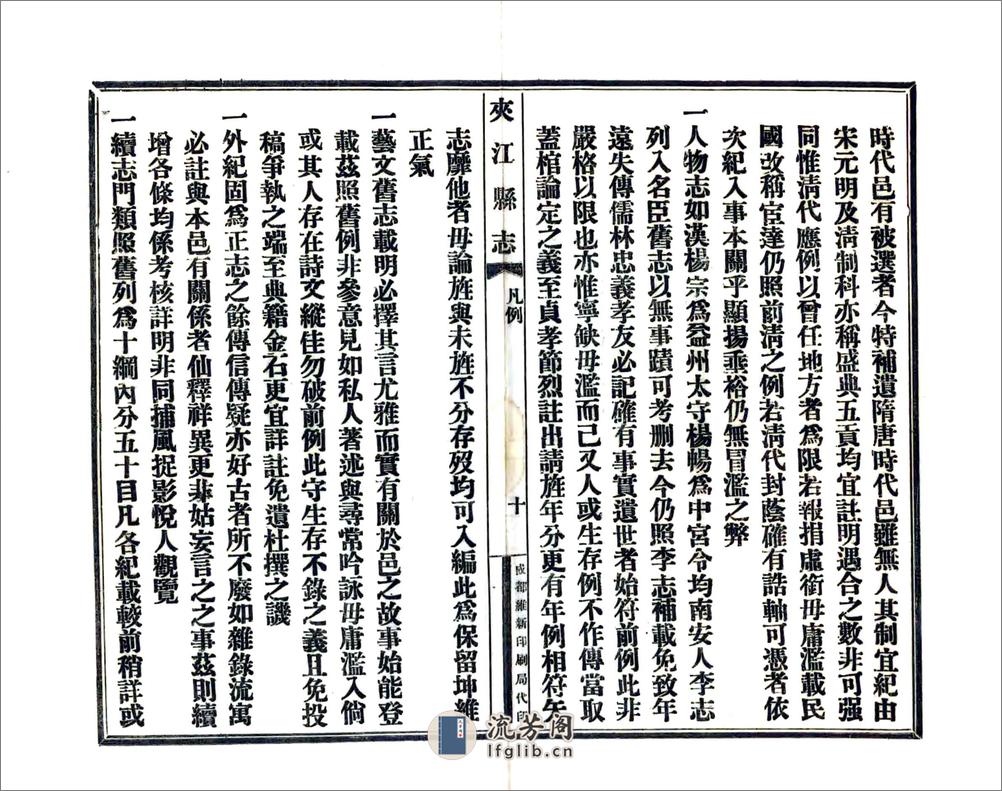 時代邑有被選者今特補遺隋唐時代邑雖無人其制宜紀由
宋元明及淸制科亦稱盛典五貢均宜註明遇合之數非可强
同惟淸代應例以曾任地方者爲限若報捐虛銜毋庸濫載民
國改稱官達仍照前淸之例若淸代封蔭確有誥軸可憑者依
次紀入事本關乎顯揚垂裕仍無冒濫之弊
一人物志如漢楊宗爲益州太守楊暢爲中宮令均南安人李志
列入名臣舊志以無事蹟可考删去今仍照李志補載免致年
遠失傳儒林忠義孝友必記確有事實遺世者始符前例此非
嚴格以限也亦惟寧缺毋濫而已又人或生存例不作傳當取
蓋棺論定之義至貞孝節烈註出請旌年分更有年例相符矢
夾江縣志
凡例
十
成都維新印刷局代印
志靡他者毋論旌與未旌不分存歿均可入編此爲保留坤維
正氣
一藝文舊志載明必擇其言尤雅而實有關於邑之故事始能登
載茲照舊例非參意見如私人著述與尋常吟詠毋庸濫入倘
或其人存在詩文縱佳勿破前例此守生存不錄之義且免投
稿爭執之端至典籍金石更宜詳註免遺杜撰之譏
一外紀固爲正志之餘傳信傳疑亦好古者所不廢如雜錄流寓
必註與本邑有關係者仙釋祥異更非姑妄言之之事茲則續
增各條均係考核詳明非同捕風捉影悅人觀覽
一續志門類照舊列爲十綱內分五十目凡各紀載較前稍詳或
流芳阁
lfglib.cn